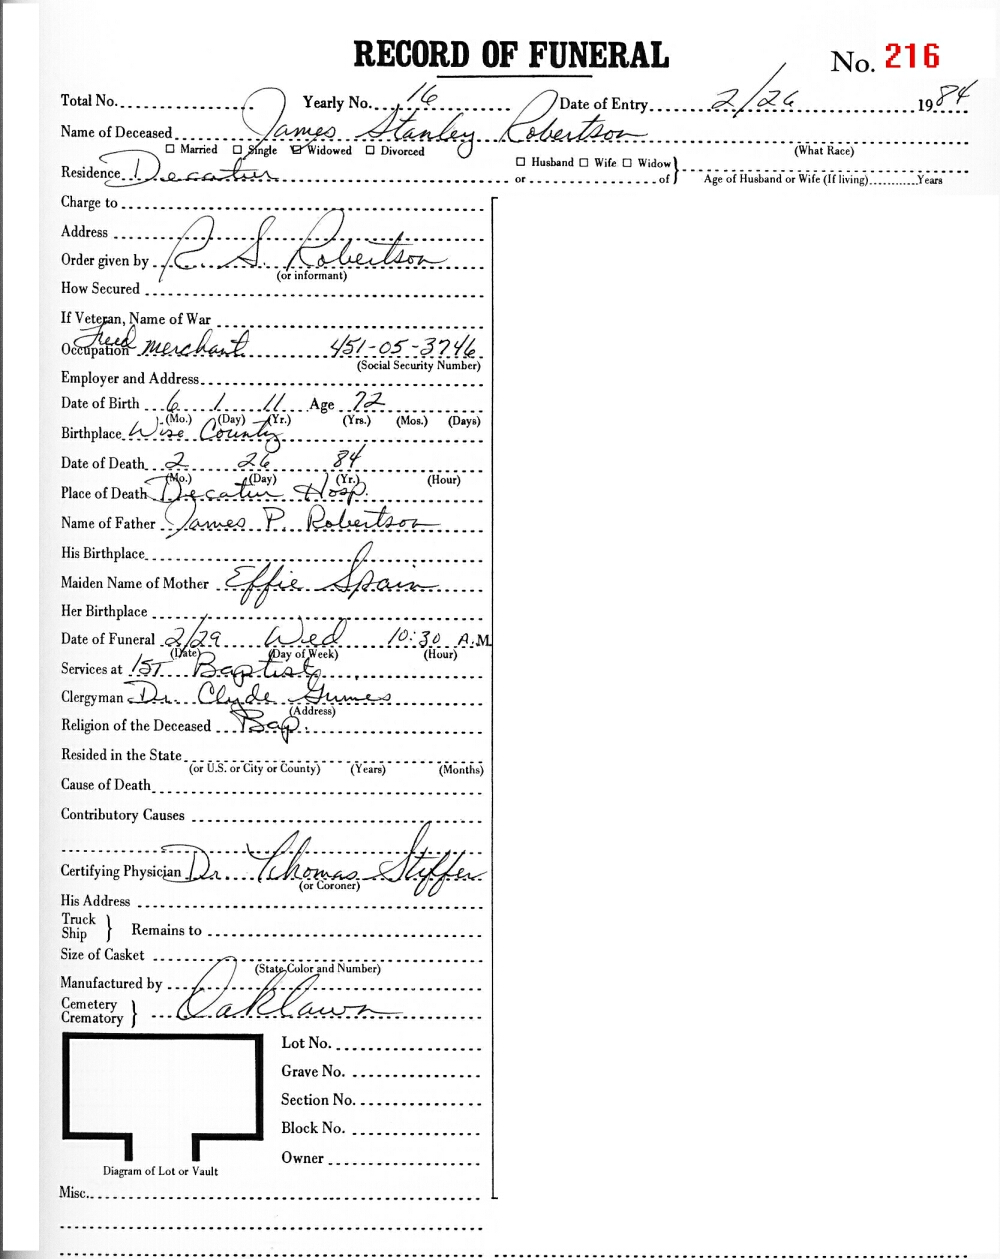 RECORD OF FUNERAL No. 216
Total No. Yearly No. 16 Date of Entry 2/26 1984
Name of Deceased James Stanley Robertson
☐ Married ☐ Single ☑ Widowed ☐ Divorced (What Race)
Residence Decatur ☐ Husband ☐ Wife ☐ Widow
or of } Age of Husband or Wife (If living) Years
Charge to
Address
Order given by R. S. Robertson
(or informant)
How Secured
If Veteran, Name of War
Occupation Feed merchant 451-05-3746
(Social Security Number)
Employer and Address
Date of Birth 6 1 11 Age 72
(Mo.) (Day) (Yr.) (Yrs.) (Mos.) (Days)
Birthplace Wise County
Date of Death 2 26 84
(Mo.) (Day) (Yr.) (Hour)
Place of Death Decatur Hosp.
Name of Father James P. Robertson
His Birthplace
Maiden Name of Mother Effie Spain
Her Birthplace
Date of Funeral 2/29 Wed 10:30 A.M
(Date) (Day of Week) (Hour)
Services at 1ST Baptist
Clergyman Dr. Clyde
(Address)
Religion of the Deceased Bap.
Resided in the State
(or U.S. or City or County) (Years) (Months)
Cause of Death
Contributory Causes
Certifying Physician Dr. Thomas
(or Coroner)
His Address
Truck
Ship } Remains to
Size of Casket
(State Color and Number)
Manufactured by
Cemetery
Crematory } Oaklawn
Lot No.
Grave No.
Section No.
Block No.
Owner
Diagram of Lot or Vault
Misc.